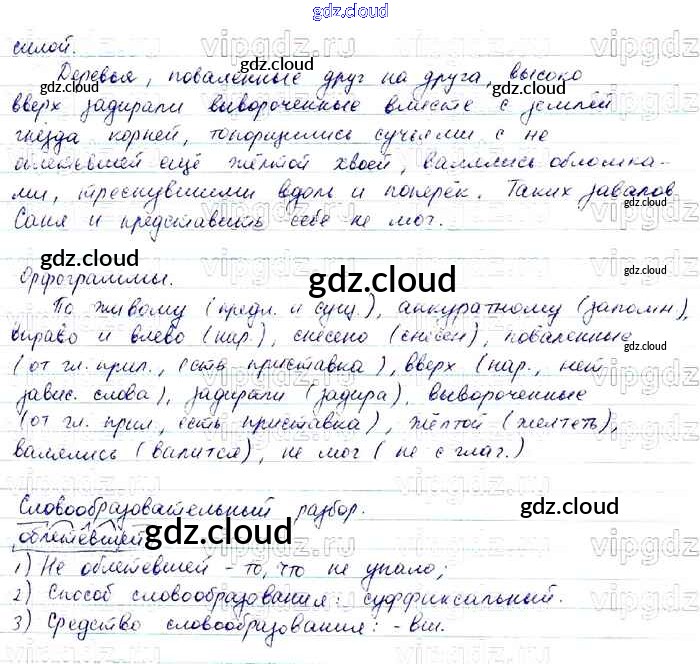 gdz.cloud
силой.
Деревья, поваленные друг на друга, высоко
вверх задирали вывороченные вместе с землёй
гнёзда корней, топорщились сучьями с не
облетевшей ещё жёлтой хвоей, валялись обломка-
ми, треснувшими вдоль и поперёк. Таких завалов
Саня и представить себе не мог.
Орфограммы.
По живому (предл. и сущ.), аккуратному (запомн),
вправо и влево (нар.), снесено (снесён), поваленные
(от гл. прил., есть приставка), вверх (нар., нет
завис. слова), задирали (задира), вывороченные
(от гл. прил, есть приставка), жёлтой (желтеть),
валялись (валится), не мог (не с глаг.)
Словообразовательный разбор.
облетевшей
1) Не облетевшей - то, что не упало;
2) Способ словообразования: суффиксальный.
3) Средство словообразования: -вш.